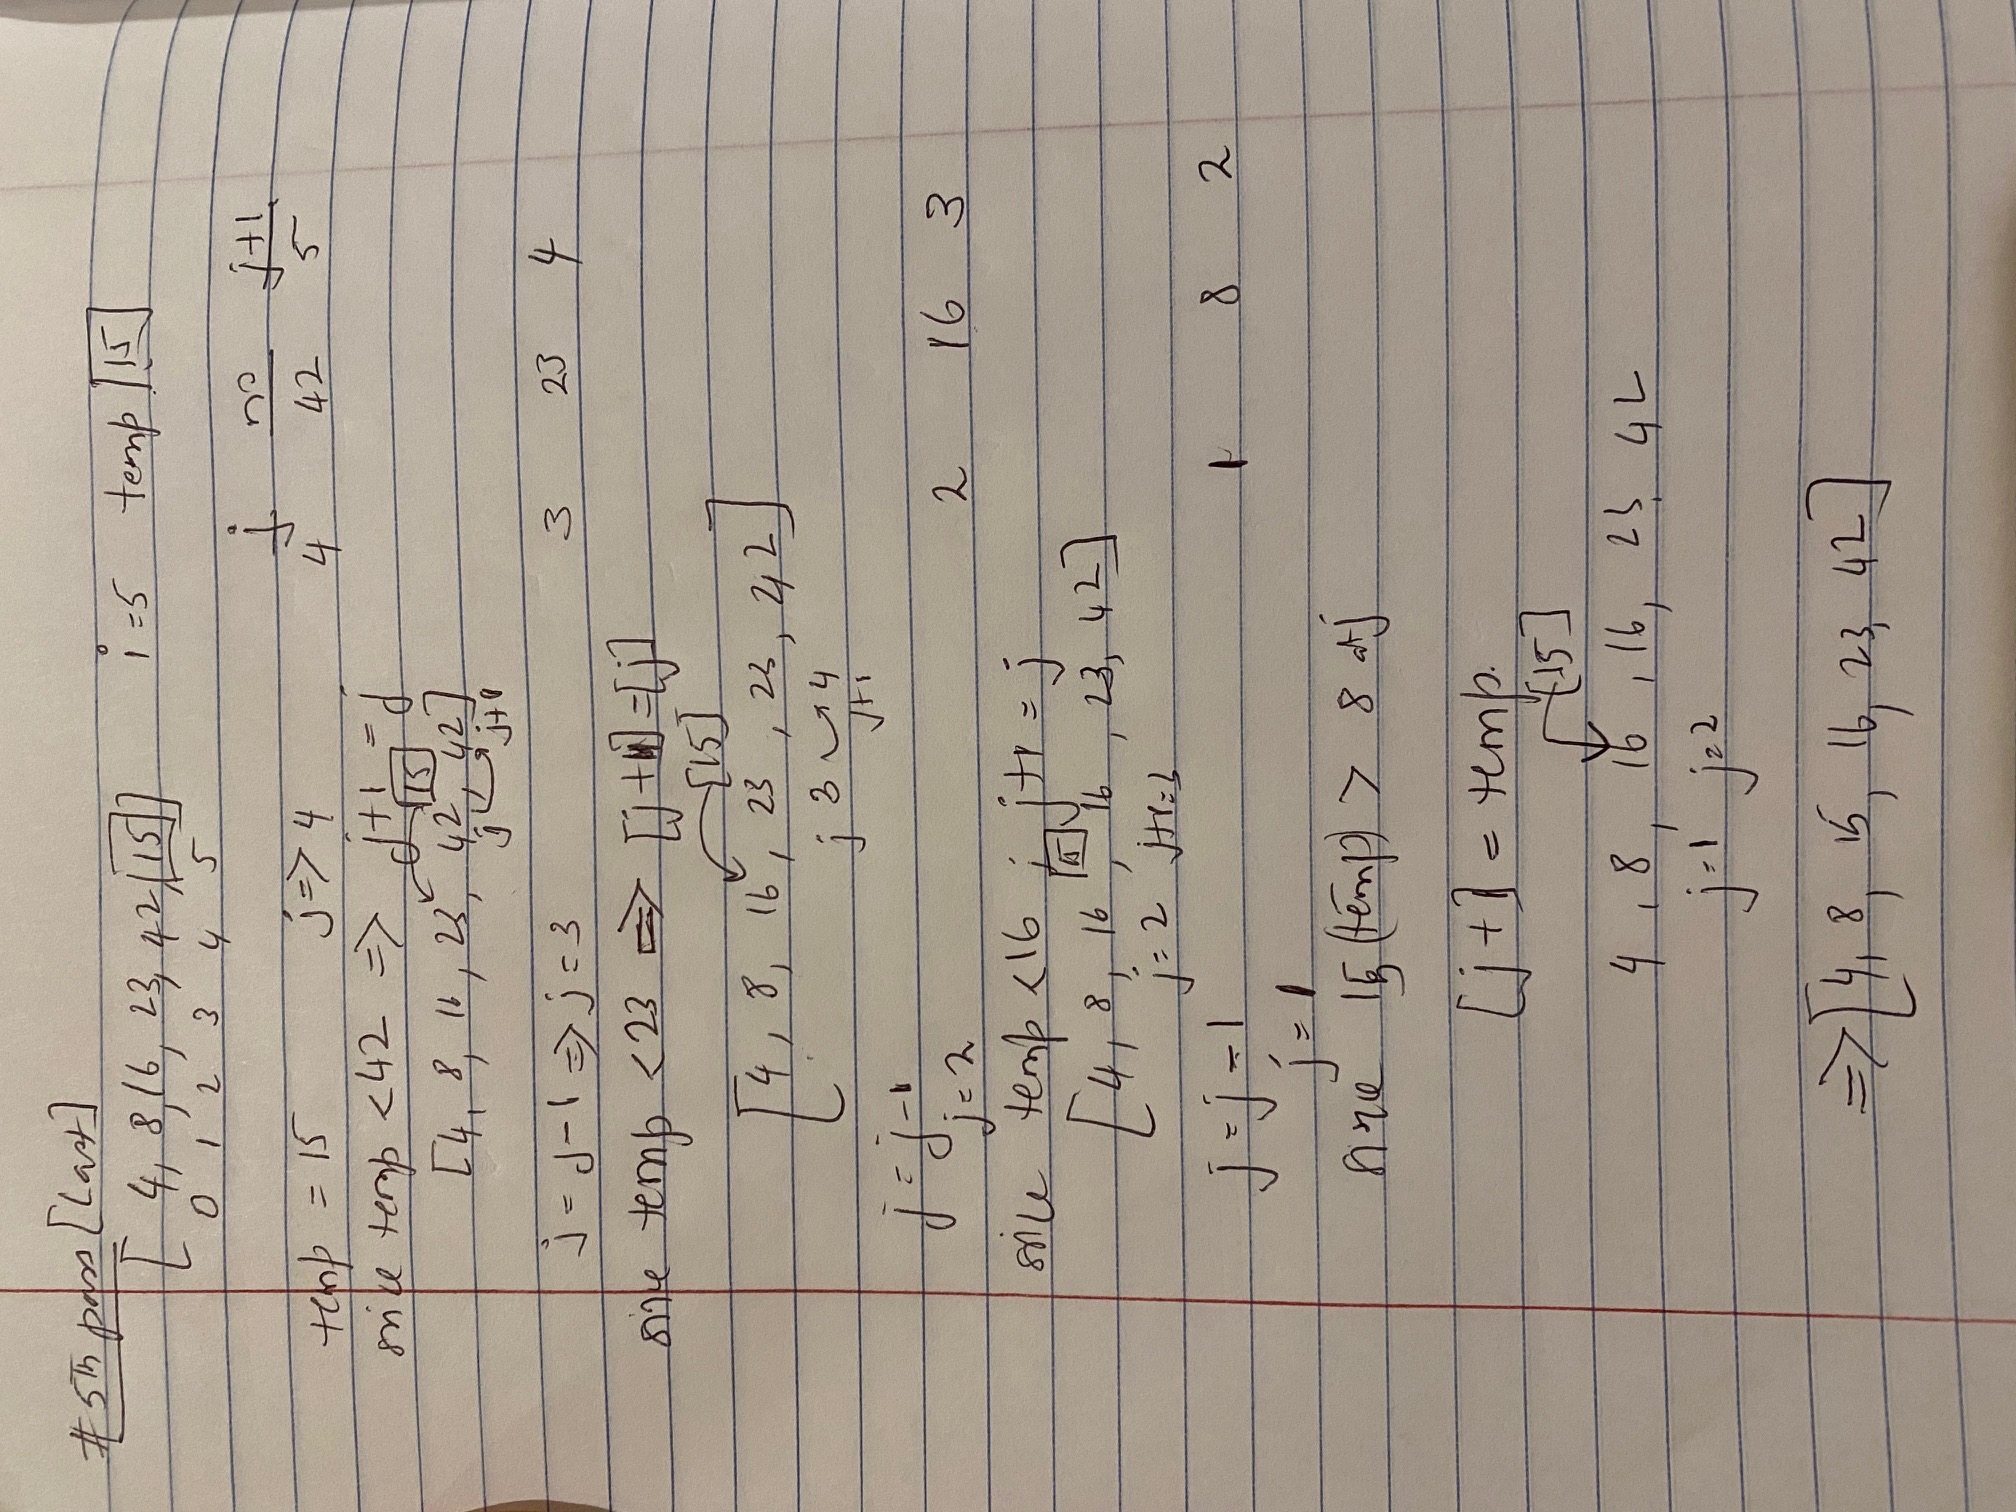 #5Th pass [Last]
[4, 8, 16, 23, 42, 15] i=5 temp 15
0 1 2 3 4 5
j no j+1
temp = 15 j=> 4 4 42 5
since temp <42 => j+1 = j
15
[4, 8, 16, 23, 42, 42]
j j+1
j = j-1 => j=3 3 23 4
since temp <23 => [j+1]=[j]
[15]
[4, 8, 16, 23, 23, 42]
j 3 4
j+1
j = j-1
j=2 2 16 3
since temp <16 ; j+1 = j
15
[4, 8, 16, 16, 23, 42]
j=2 j+1=3
j=j-1 1 8 2
j=1
since 15 (temp) > 8 at j
[j+1] = temp.
[15]
4, 8, 16, 16, 23, 42
j=1 j=2
=> [4, 8, 15, 16, 23, 42]